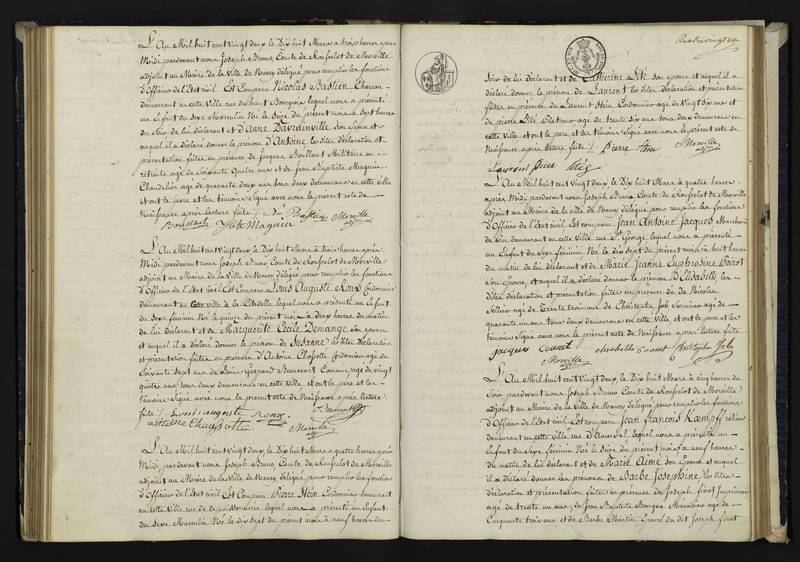 L'An Mil huit cent Vingt deux le Dix huit Mars à trois heures après
Midi, pardevant nous Joseph Bruno, Comte de Ronfselot de Morville
adjoint au Maire de la Ville de Nancy délégué pour remplir les fonctions
d'Officier de l'état civil. Est Comparu Nicolas Bastien, Charron
demeurant en cette Ville lequel nous a présenté
un Enfant du Sexe Masculin. Né le Seize du présent mois à Sept heures
du Soir de lui déclarant et d'Anne Davrainville son Epouse et
auquel il a déclaré donner le prénom d'Antoine, les dites déclaration et
présentation faites en présence de Jacques Boillaut Militaire en
retraite âgé de Soixante Quatre ans et de Jean Baptiste Maguin
Chandelier âgé de quarante deux ans tous deux demeurans en cette Ville
et ont le père et les témoins Signé avec nous le présent acte de
Naissance après Lecture faite. N. Bastien Morville
Boillaut J Bte Maguin
L'An Mil huit cent Vingt deux le Dix huit Mars à trois heures après
Midi, pardevant nous Joseph Bruno Comte de Ronfselot de Morville
adjoint au Maire de la Ville de Nancy délégué pour remplir les fonctions
d'Officier de l'état Civil Est Comparu Louis Auguste Roux Cordonnier
demeurant en cette Ville à la Citadelle lequel nous a présenté un Enfant
du Sexe féminin Né le quinze du présent mois à deux heures du matin
de lui déclarant et de Marguerite Cécile Demange son Epouse
et auquel il a déclaré donner le prénom de Susanne les dites Déclaration
et présentation faites en présence d'Antoine Chafsotte Cordonnier âgé de
Soixante Sept ans et de Gaspard Beaucourt Commis âgé de Vingt
quatre ans tous deux demeurans en cette Ville, et ont le père et les
témoins Signé avec nous le présent acte de Naissance après lecture
faite. Louis auguste Roux
antoine Chaussotte Morville
L'An Mil huit cent Vingt deux, le Dix huit Mars à quatre heures après
Midi, pardevant nous Joseph Bruno, Comte de Ronfselot de Morville
adjoint au Maire de la Ville de Nancy, délégué pour remplir les fonctions
d'Officier de l'état Civil est Comparu Pierre Cordonnier demeurant
en cette Ville rue de la poissonnerie lequel nous a présenté un Enfant
du Sexe Masculin Né le dix Sept du présent mois à neuf heures du
Quatre vingt
Soir de lui déclarant et de Catherine Lité son épouse et auquel il a
déclaré donner le prénom de Laurent les dites déclaration et présentation
faites en présence de Laurent Cordonnier âgé de Vingt Six ans et
de pierre Lité Platineur âgé de trente six ans tous deux demeurans en
cette Ville et ont le père et les témoins Signé avec nous le présent acte de
Naissance après lecture faite. Pierre Morville
Laurent pierre
L'An Mil huit cent Vingt deux le Dix huit Mars à quatre heures
après Midi, pardevant nous Joseph Bruno Comte de Ronfselot de Morville
adjoint au Maire de la Ville de Nancy délégué pour remplir les fonctions
d'Officier de l'état Civil est comparu Jean Antoine Jacques Marchand
de Vin demeurant en cette Ville rue St George lequel nous a présenté
un Enfant du Sexe féminin Né le dix Sept du présent mois à huit heures
du matin de lui déclarant et de Marie Jeanne Euphrosine Barot
Son Epouse, et auquel il a déclaré donner le prénom d'Elisabeth les
dites déclaration et présentation faites en présence de Nicolas
Sellier âgé de trente trois ans de Christophe Job âgé de
quarante un ans tous deux demeurans en cette Ville et ont le père et les
témoins Signé avec nous le présent acte de Naissance après lecture faite
Jacques Christophe Job
Morville
L'An Mil huit cent Vingt deux le Dix huit Mars à cinq heures du
Soir pardevant nous Joseph Bruno Comte de Ronfselot de Morville
adjoint au Maire de la Ville de Nancy délégué pour remplir les fonctions
d'Officier de l'état Civil. Est comparu Jean François Kœmpff relieur
demeurant en cette Ville rue d'Amerval lequel nous a présenté un
Enfant du Sexe féminin Né le Seize du présent mois à neuf heures
du matin de lui déclarant et de Marie Aimé son Epouse et auquel
il a déclaré donner les prénoms de Barbe Joséphine les dites
déclaration et présentation faites en présence de Joseph finot Imprimeur
âgé de trente un ans, de Jean Baptiste Bourgon Menuisier âgé de
Cinquante trois ans et de Barbe Martin Epouse du dit Joseph finot